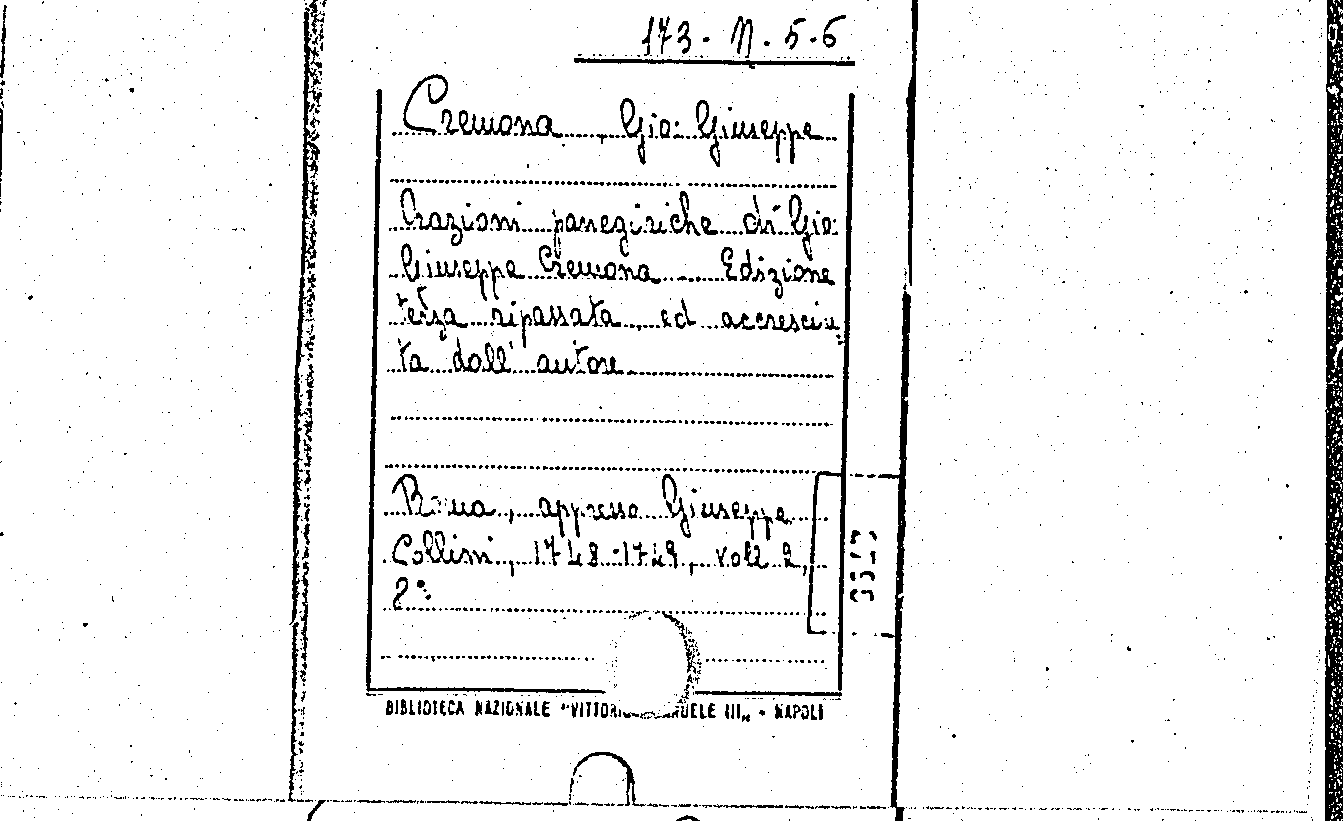 173. N. 5-6
Cremona, Gio: Giuseppe
Orazioni panegiriche di Gio:
Giuseppe Cremona Edizione
terza ripassata, ed accresciu
ta dall' autore
Roma, appresso Giuseppe
Collini, 1748-1749, voll 2,
8°.
BIBLIOTECA NAZIONALE "VITTORIO EMANUELE III„ - NAPOLI